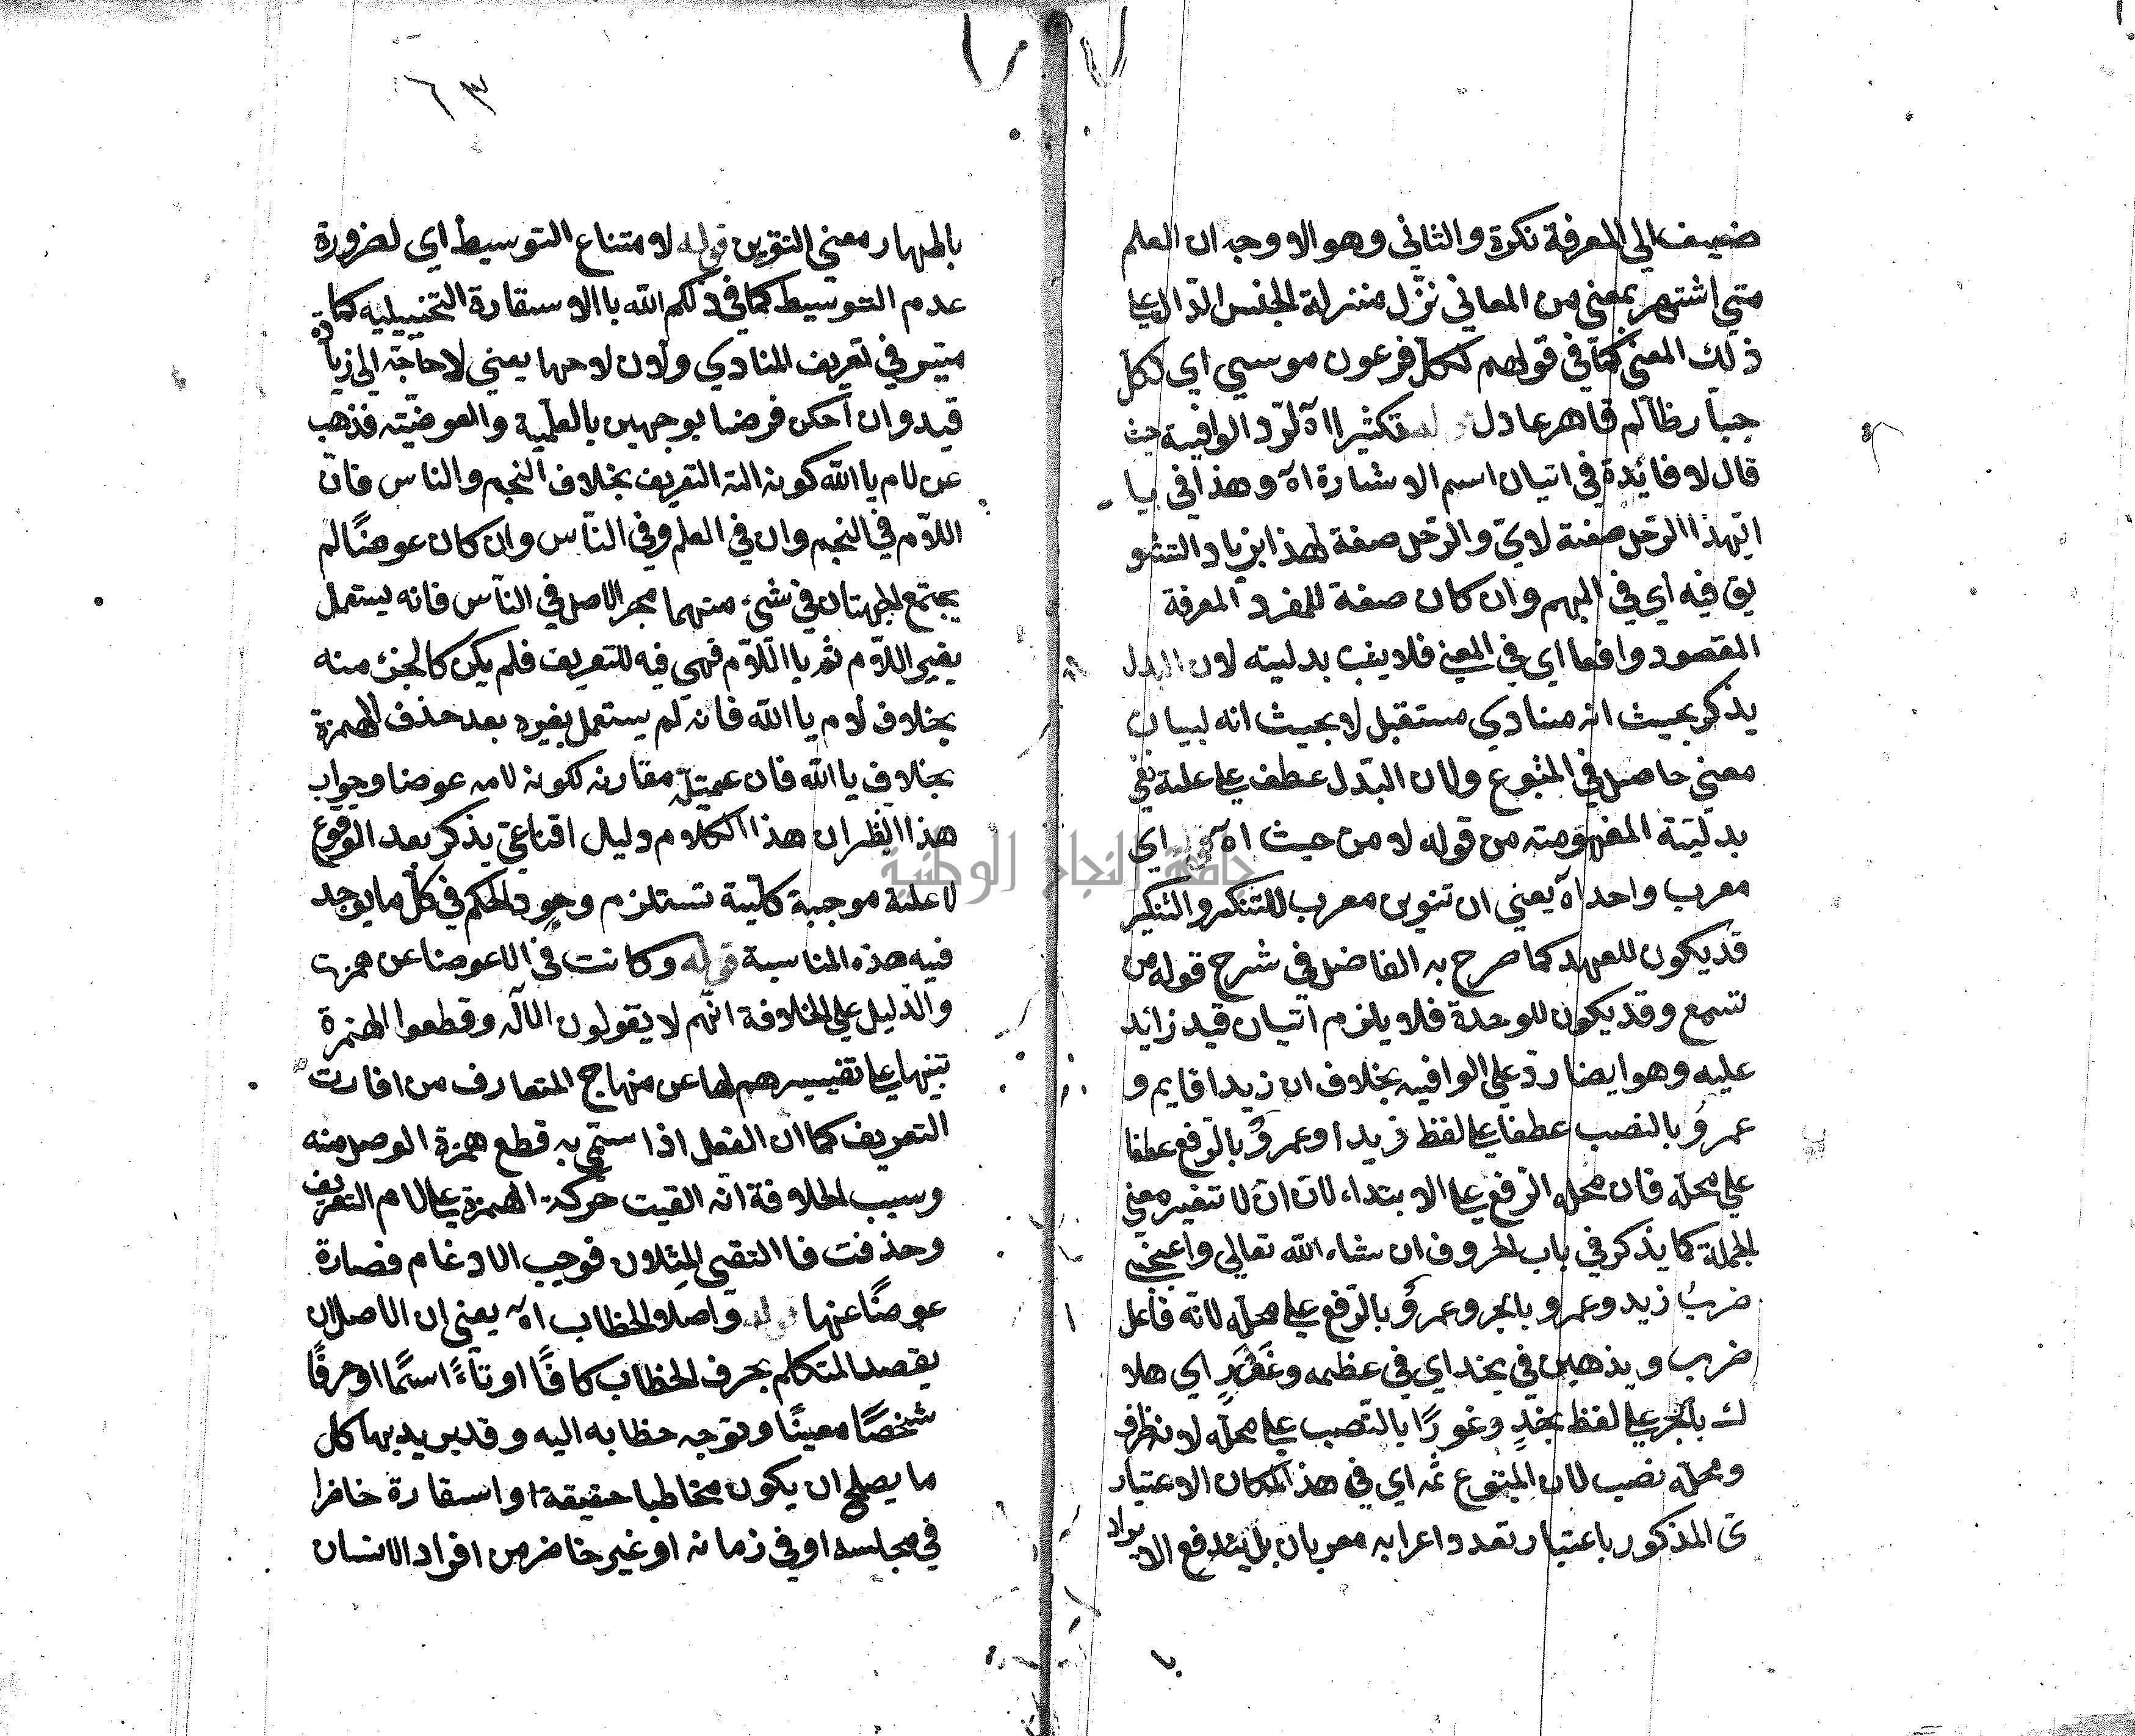 ضعيف الي المعرفة نكرة والثاني وهو الاوجه ان العلم
متي اشتهر بمعني من المعاني نزّل منزلة الجنس الدّال علي
ذلك المعني كما في قولهم لكلّ فرعون موسي اي لكلّ
جبّار ظالم قاهر عادل قوله تكثيرا اه لردّ الوافية حيث
قال لا فائدة في اتيان اسم الاشارة اه وهذا في يا
ايّهذا الرّجل صفة لايّ والرّجل صفة لهذا بزياد التشو
يق فيه اي في المبهم وان كان صفة للمفرد المعرفة
المقصود واقعا اي في المعني فلا يفت بدليته لان البدل
يذكر بحيث انه منادي مستقبل لا بحيث انه لبيان
معني حاصل في المتبوع ولان البدل عطف علي علية نفي
بدليّة المفهومته من قوله لا من حيث اه قوله اي
معرب واحد اه يعني ان تنوين معرب للتنكير والتنكير
قد يكون للعهد كما صرح به الفاضل في شرح قوله من
تسمع وقد يكون للوحدة فلا يلزم اتيان قيد زائد
عليه وهو ايضا ردّ علي الوافيه بخلاف ان زيدا قايم و
عمروُ بالنصب عطفا علي لفظ زيدا وعمروُ بالرّفع عطفا
علي محلّه فان محله الرّفع علي الابتداء لانّ انّ لا تتغير معني
الجملة كما يذكر في باب الحروف ان شاء الله تعالي واعجبني
ضربُ زيد وعمرو بالجر وعمروُ بالرّفع علي محلّه لانّه فاعل
ضرب ويذهبن في نجد اي في عظمه وغَوْرٍ اي هلا
ك بالجر علي لفظ نجدٍ وغورًا بالنّصب علي محلّه لانه ظرف
ومحلّه نصب لان المتبوع ثمه اي في هذا المكان الاعتبار
ي المذكور باعتبار تعدد اعرابه معربان بل يندفع الايراد
باظهار معني التقوين قوله لامتناع التوسيط اي لضرورة
عدم التوسيط كما في ذلكم الله بالاستقارة التخييليه كما
ميّز في تعريف المنادي ولان لامها يعني لا حاجة الي زيادة
قيد وان امكن فرضا بوجهين بالعلمية والعوضيّة فذهب
عن لام يا الله كونه الة التعريف بخلاف النجم والناس فانّ
اللاّم في النجم وان في العلم وفي النّاس وان كان عوضًا لم
يجتمع الجهتان في شيء منهما مجر الاصل في النّاس فانه يستعمل
بغير اللاّم ثم يا اللاّم فهي فيه للتعريف فلم يكن كالجزء منه
بخلاف لام يا الله فانه لم يستعمل بغيره بعد حذف الهمزة
بخلاف يا الله فان عميتله مقارنه لكونه لامه عوضا وجواب
هذا النظر ان هذا الكلام دليل اقناعيّ يذكر بعد الوقوع
لا علية موجبة كليّة تستلزم وجود الحكم في كلّ ما يوجد
فيه هذه المناسبة قوله وكانت في الا عوضا عن همزت
والدّليل علي الخلافة انّهم لا يقولون الالٓه وقطعوا الهمزة
تنبيها علي تغييرهم لها عن منهاج المتعارف من افارت
التعريف كما ان الفعل اذا سمّي به قطع همزة الوصل منه
وسبب الخلافة انّه القيت حركة الهمزة علي لام التعريف
وحذفت فا التقي المِثلان فوجب الادغام فصارة
عوضًا عنها قوله واصلا الخطاب اه يعني ان الاصل ان
يقصد المتكلم بحرف الخطاب كافًا او تاءً اسمًا او حرفًا
شخصًا معينًا وتوجه خطابه اليه وقد يريد بها كل
ما يصلح ان يكون مخاطبا حقيقة او استقارة حاضرا
في مجلسه او في زمانه او غير حاضر من افراد الانسان
٦٣
جامعة النجاح الوطنية